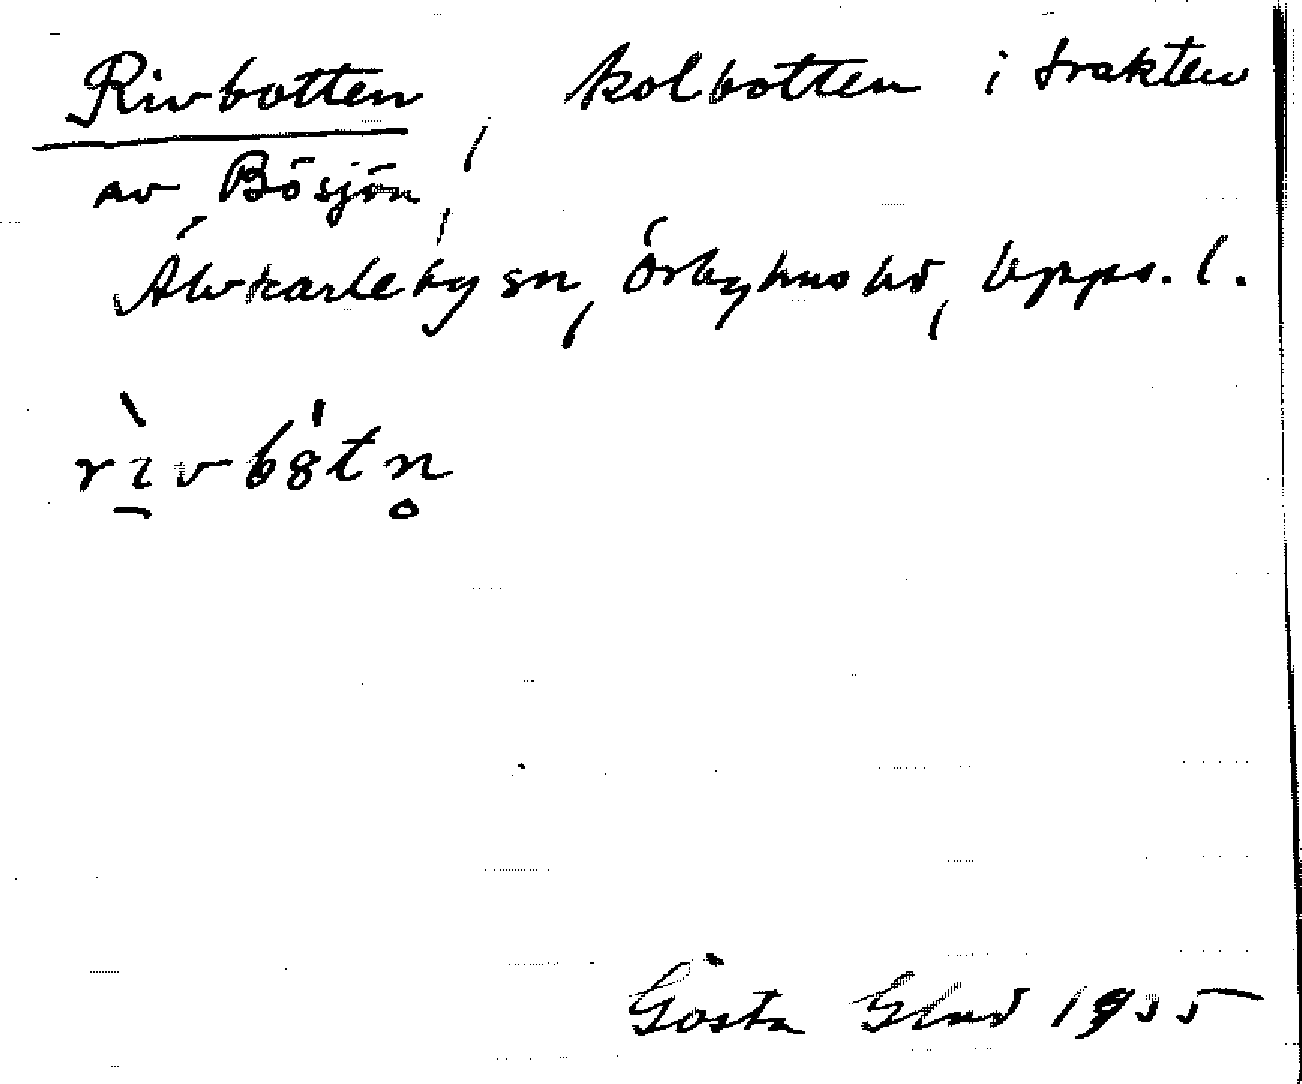 Rivbotten, kolbotten i trakten
av Bösjön,
Älvkarleby sn, Örbyhus hd, Upps. l.
rìvbȯtn̥
Gösta 1935